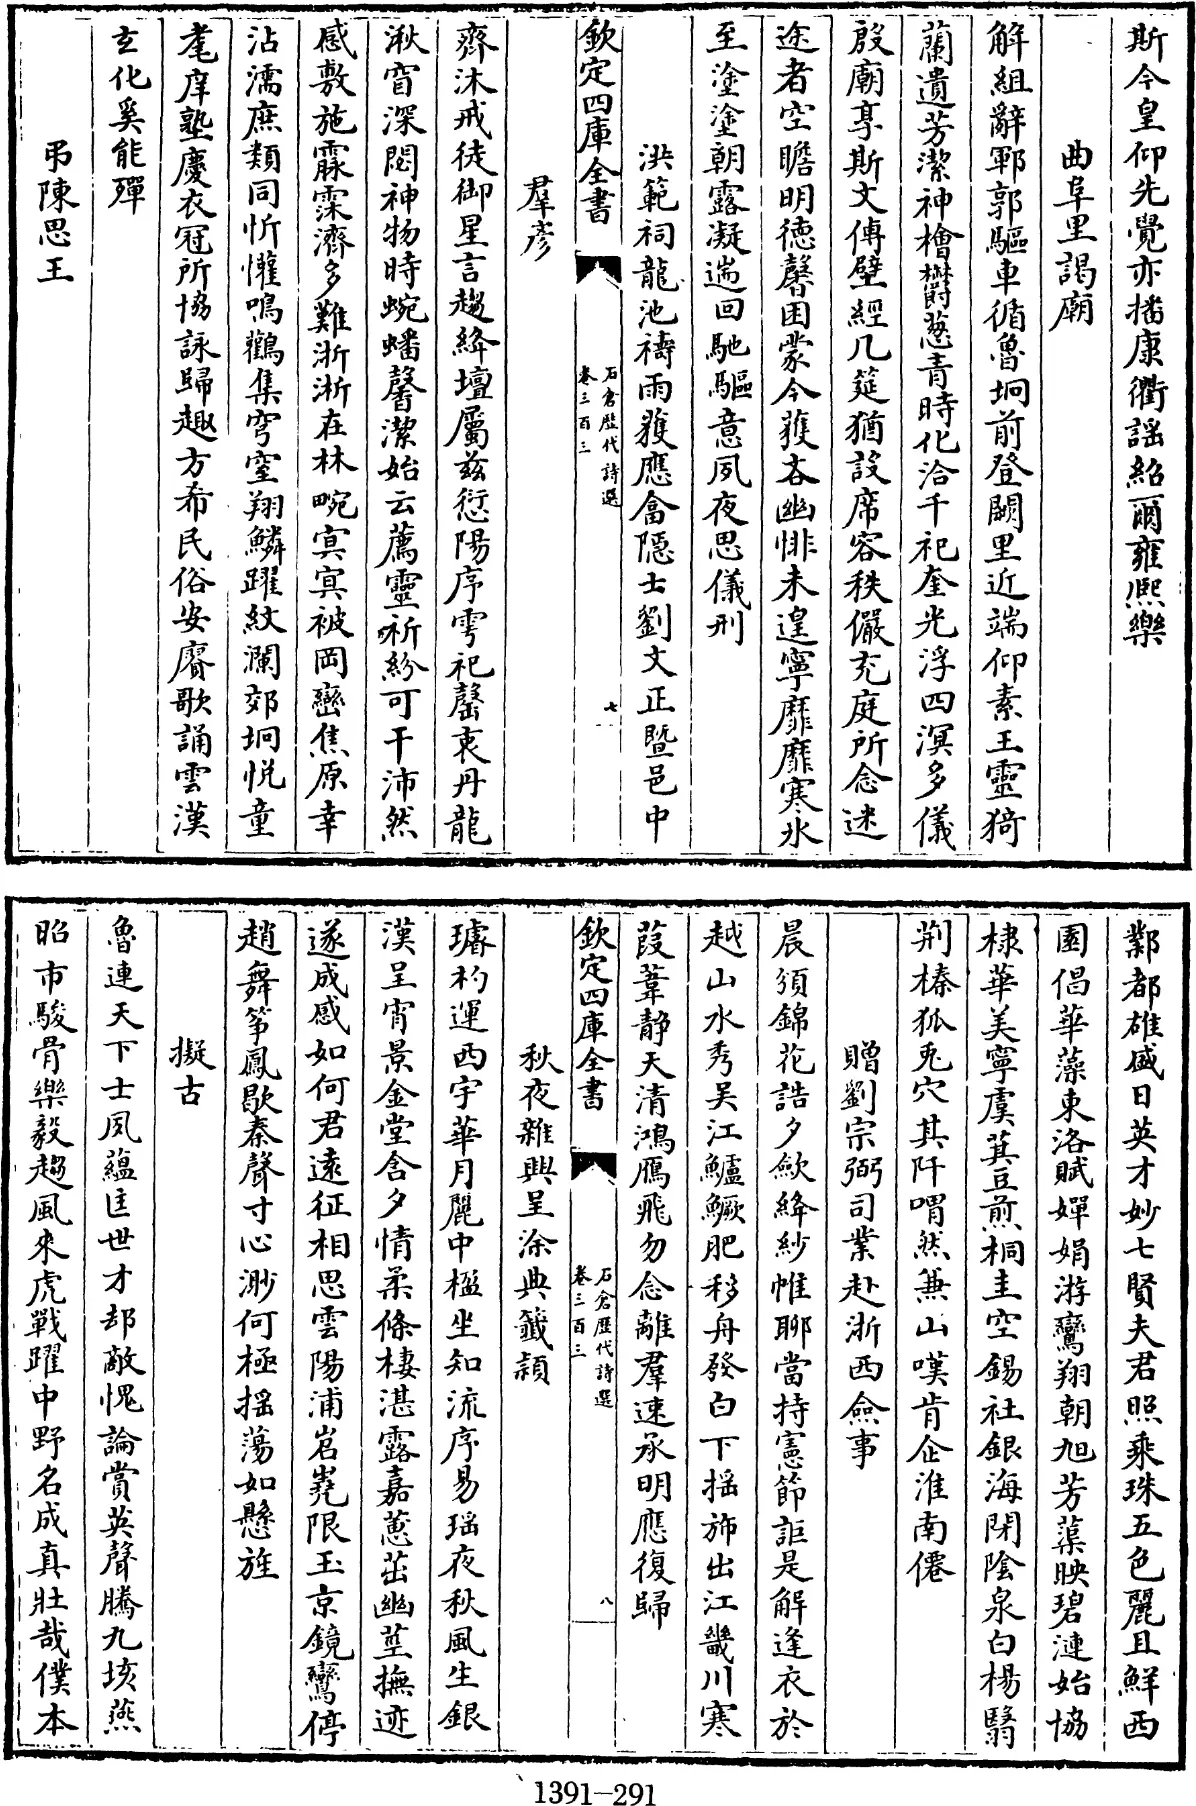 斯今皇仰先覺亦播康衢謡紹爾雍熈樂
曲阜里謁廟
解組辭鄆郭驅車循魯坰前登闕里近端仰素王靈猗
蘭遺芳潔神檜欝葱青時化洽千祀奎光浮四溟多儀
殷廟享斯文傳壁經几筵猶設席容秩儼充庭所念迷
途者空瞻明德馨困蒙今獲吝幽悱未遑寧靡靡寒氷
至塗塗朝露凝遄回馳驅意夙夜思儀刑
洪範祠龍池禱雨獲應畣隠士劉文正暨邑中
欽定四庫全書
石倉歴代詩選
卷三百三
七
羣彦
齊沐戒徒御星言趨絳壇屬兹愆陽序雩祀罄衷丹龍
湫窅深閟神物時蜿蟠馨潔始云薦靈祈紛可干沛然
感敷施霡霂濟多難淅淅在林畹㝠㝠被岡巒焦原幸
沾濡庶類同忻懽鳴鸛集穹窒翔鱗躍紋瀾郊坰悦童
耄庠塾慶衣冠所協詠歸趣方希民俗安賡歌誦雲漢
玄化奚能殫
弔陳思王
鄴都雄盛日英才妙七賢夫君照乘珠五色麗且鮮西
園倡華藻東洛賦嬋娟游鸞翔朝旭芳蕖映碧漣始協
棣華美寧虞萁豆煎桐圭空錫社銀海閉陰泉白楊翳
荆榛狐兎穴其阡喟然兼山嘆肯企淮南僊
贈劉宗弼司業赴浙西僉事
晨須錦花誥夕歛絳紗帷聊當持憲節詎是解逢衣於
越山水秀吴江鱸鱖肥移舟發白下揺斾出江畿川寒
葭葦静天清鴻鴈飛勿念離羣速承明應復歸
欽定四庫全書
石倉歴代詩選
卷三百三
八
秋夜雜興呈涂典籖頴
璿杓運西宇華月麗中楹坐知流序易瑶夜秋風生銀
漢呈宵景金堂含夕情柔條棲湛露嘉蕙茁幽莖撫迹
遂成感如何君遠征相思雲陽浦岧嶤限玉京鏡鸞停
趙舞筝鳳歇秦聲寸心渺何極揺蕩如懸旌
擬古
魯連天下士夙藴匡世才却敵愧論賞英聲騰九垓燕
昭市駿骨樂毅趨風來虎戰躍中野名成真壯哉僕本
1391—291